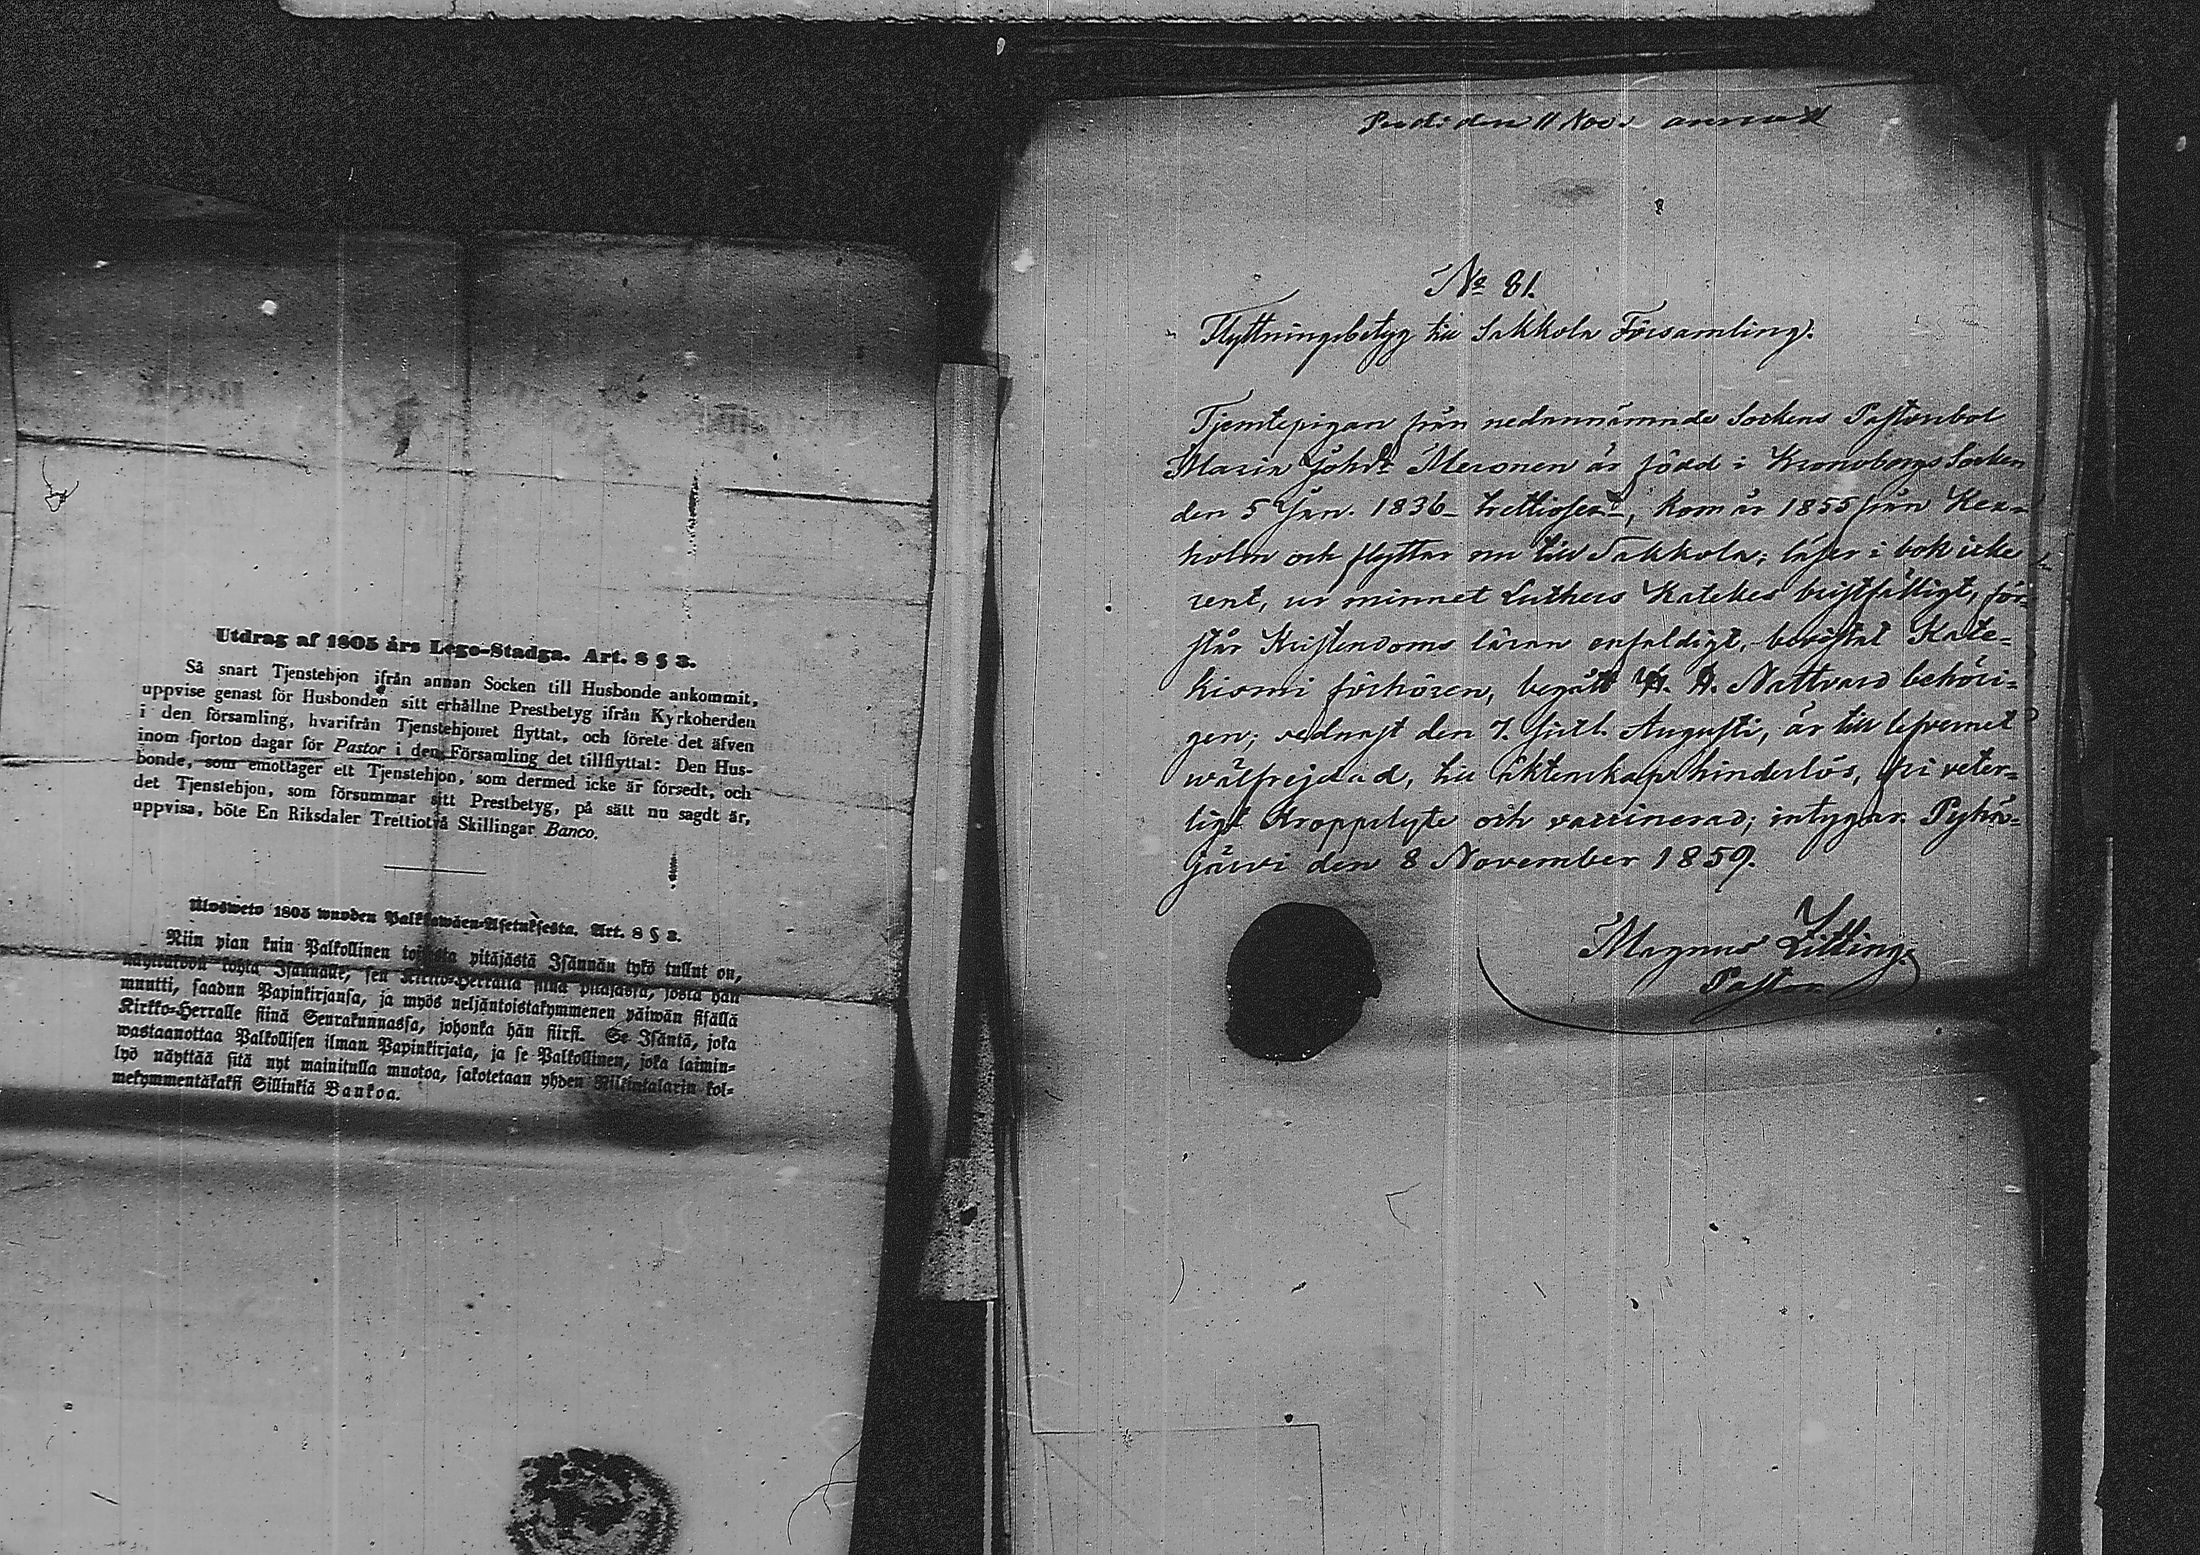 Utdrag af 1805 års Lego-Stadga. Art. 8 § 3.
Så snart Tjenstehjon ifrån annan Socken till Husbonde ankommit,
uppvise genast för Husbonden sitt erhållne Prestbetyg ifrån Kyrkoherden
i den församling, hvarifrån Tjenstehjonet flyttat, och förete det äfven
inom fjorton dagar för Pastor i den Församling det tillflyttat: Den Hus-
bonde, som emottager ett Tjenstehjon, som dermed icke är försedt, och
det Tjenstehjon, som försummar sitt Prestbetyg, på sätt nu sagdt är,
uppvisa, böte En Riksdaler Trettiotvå Skillingar Banco.
Ulosweto 1805 wuoden Palkkawäen-Asetuksesta. Art. 8 § 3.
Niin pian kuin Palkollinen toisesta pitäjästä Isännän tykö tullut on,
näyttäköön kohta Isännälle, sen Kirkko-Herralta siinä pitäjässä, josta hän
muutti, saadun Papinkirjansa, ja myös neljäntoistakymmenen päiwän sisällä
Kirkko-Herralle siinä Seurakunnassa, johonka hän siirsi. Se Isäntä, joka
wastaanottaa Palkollisen ilman Papinkirjata, ja se Palkollinen, joka laimin-
lyö näyttää sitä nyt mainitulla muotoa, sakotetaan yhden Riikintalarin kol-
mekymmentäkaksi Sillinkiä Bankoa.
den 11 Nov.
No 81.
Flyttningsbetyg till Sakkola Församling.
Tjenstepigan från nedannämnde Sockens Pastorsbol
Maria Johdr Meronen är född i Kronoborgs Socken
den 5 Jan. 1836 - trettiosex -, kom år 1855 från Kex-
holm och flyttar nu till Sakkola; läser i bok icke
rent, ur minnet Luthers Kateches bristfälligt, för-
står Kristendoms läran enfaldigt, bevistat Kate-
kismi förhören, begått H. H. Nattvard behöri-
gen; sednast den 7. sistl. Augusti, är till lefvernet
wälfrejdad, till äktenskap hinderlös, fri veter-
ligt kroppslyte och vaccinerad; intygar Pyhä-
järvi den 8 November 1859.
Magnus
Pastor